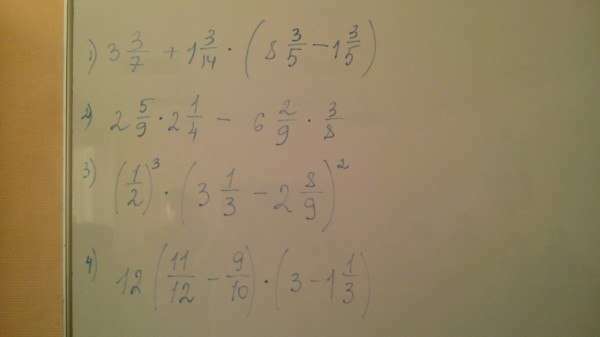 1) 3 3/7 + 1 3/14 · (8 3/5 − 1 3/5)
2) 2 5/9 · 2 1/4 − 6 2/9 · 3/8
3) (1/2)³ · (3 1/3 − 2 8/9)²
4) 12 (11/12 − 9/10) · (3 − 1 1/3)